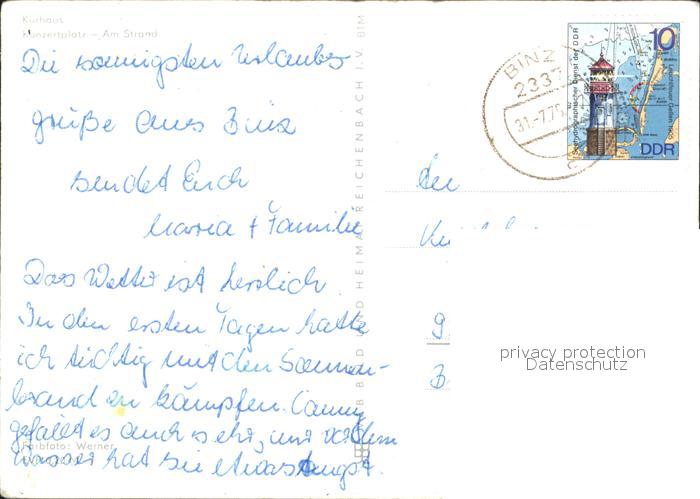 Kurhaus
Konzertplatz – Am Strand
Die sonnigsten Urlaubs-
grüße aus Binz
sendet Euch
Maria + Familie
Das Wetter ist herrlich.
In den ersten Tagen hatte
ich tüchtig mit den Sonnen-
brand zu kämpfen. Conny
gefällt es auch sehr, nur vor dem
Wasser hat sie etwas Angst.
Farbfoto: Werner
BILD UND HEIMAT REICHENBACH I.V. BIM
BINZ
2337
31.-7.75
10
Seehydrographischer Dienst der DDR
Leuchtfeuer
DDR
9
B
privacy protection
Datenschutz